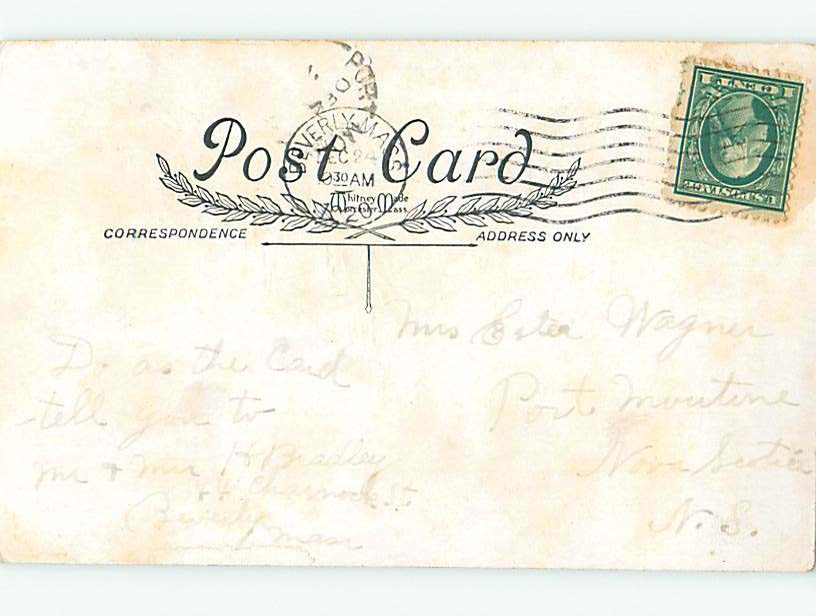 PORT
BEVERLY, MASS
DEC 24
30 AM
1 CENT 1
U.S. POSTAGE
Post Card
Whitney Made
Worcester, Mass
CORRESPONDENCE
ADDRESS ONLY
Mrs Ester Wagner
Port Moutine
Nova Scotia
N. S.
Do as the Card
tell you to
Mr & Mrs H Bradley
44 Charnock St
Beverly
Mass